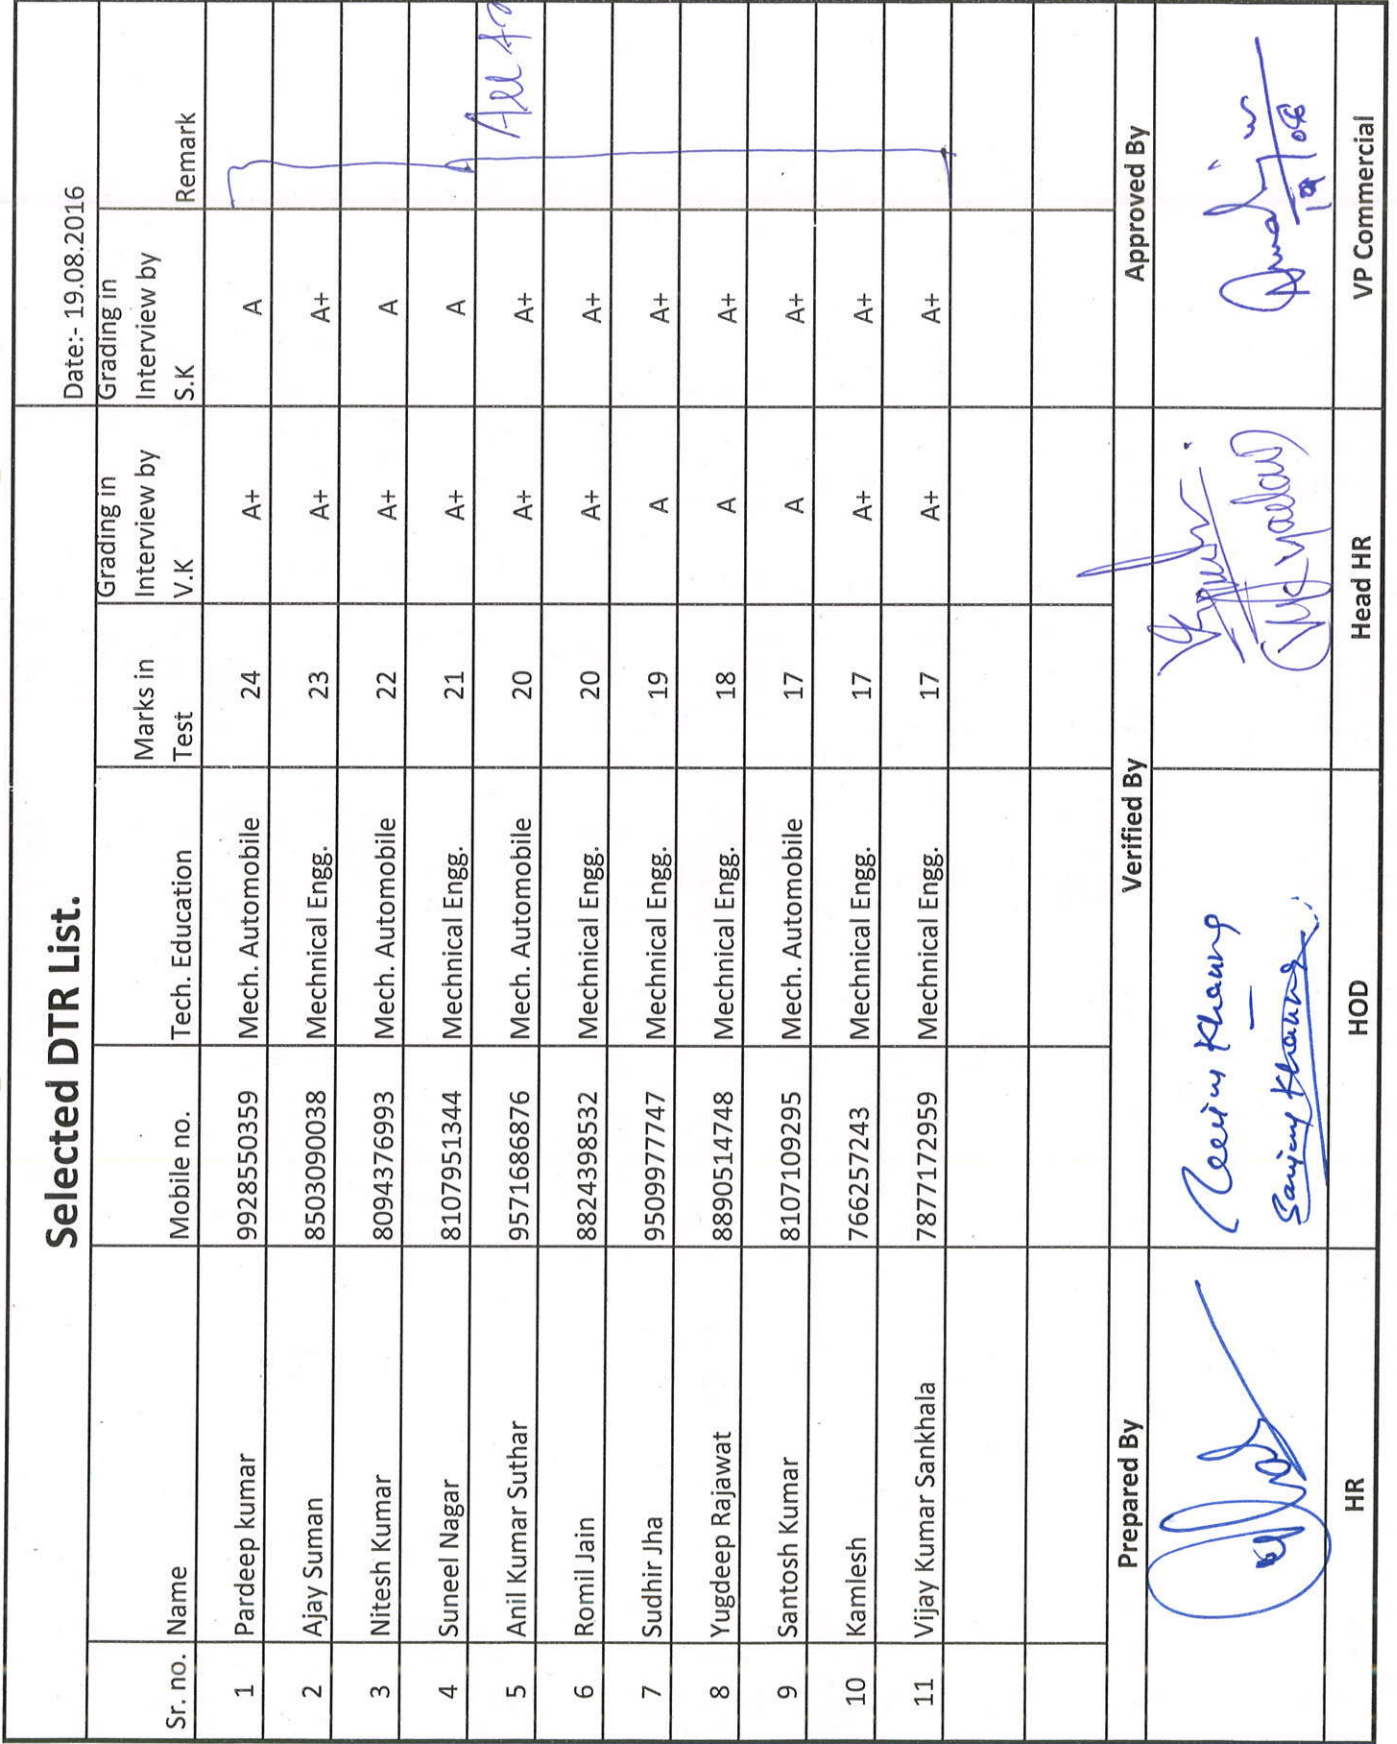 Selected DTR List.
Date:- 19.08.2016
Sr. no. Name Mobile no. Tech. Education Marks in Test Grading in Interview by V.K Grading in Interview by S.K Remark
1 Pardeep kumar 9928550359 Mech. Automobile 24 A+ A
2 Ajay Suman 8503090038 Mechnical Engg. 23 A+ A+
3 Nitesh Kumar 8094376993 Mech. Automobile 22 A+ A
4 Suneel Nagar 8107951344 Mechnical Engg. 21 A+ A
5 Anil Kumar Suthar 9571686876 Mech. Automobile 20 A+ A+ All
6 Romil Jain 8824398532 Mechnical Engg. 20 A+ A+
7 Sudhir Jha 9509977747 Mechnical Engg. 19 A A+
8 Yugdeep Rajawat 8890514748 Mechnical Engg. 18 A A+
9 Santosh Kumar 8107109295 Mech. Automobile 17 A A+
10 Kamlesh 766257243 Mechnical Engg. 17 A+ A+
11 Vijay Kumar Sankhala 7877172959 Mechnical Engg. 17 A+ A+
Prepared By Verified By Approved By
Khanna
Sanjay Khanna
19/08
HR HOD Head HR VP Commercial